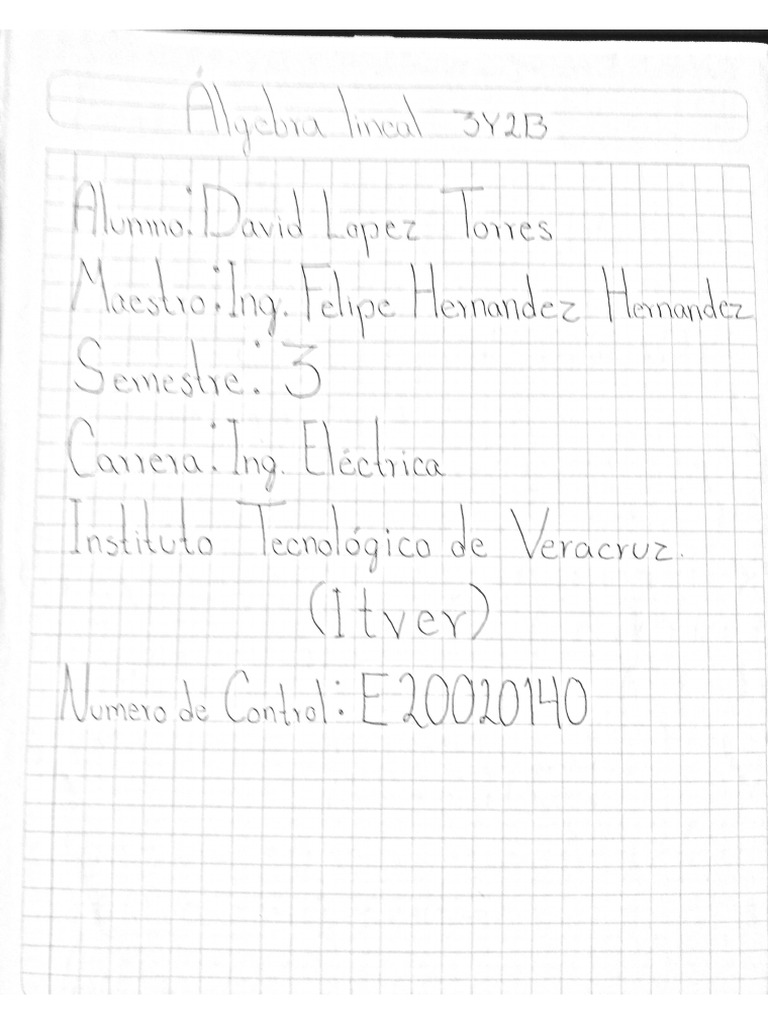 Álgebra lineal 3Y2B
Alumno: David Lopez Torres
Maestro: Ing. Felipe Hernandez Hernandez
Semestre: 3
Carrera: Ing. Eléctrica
Instituto Tecnológico de Veracruz.
(Itver)
Numero de Control: E20020140